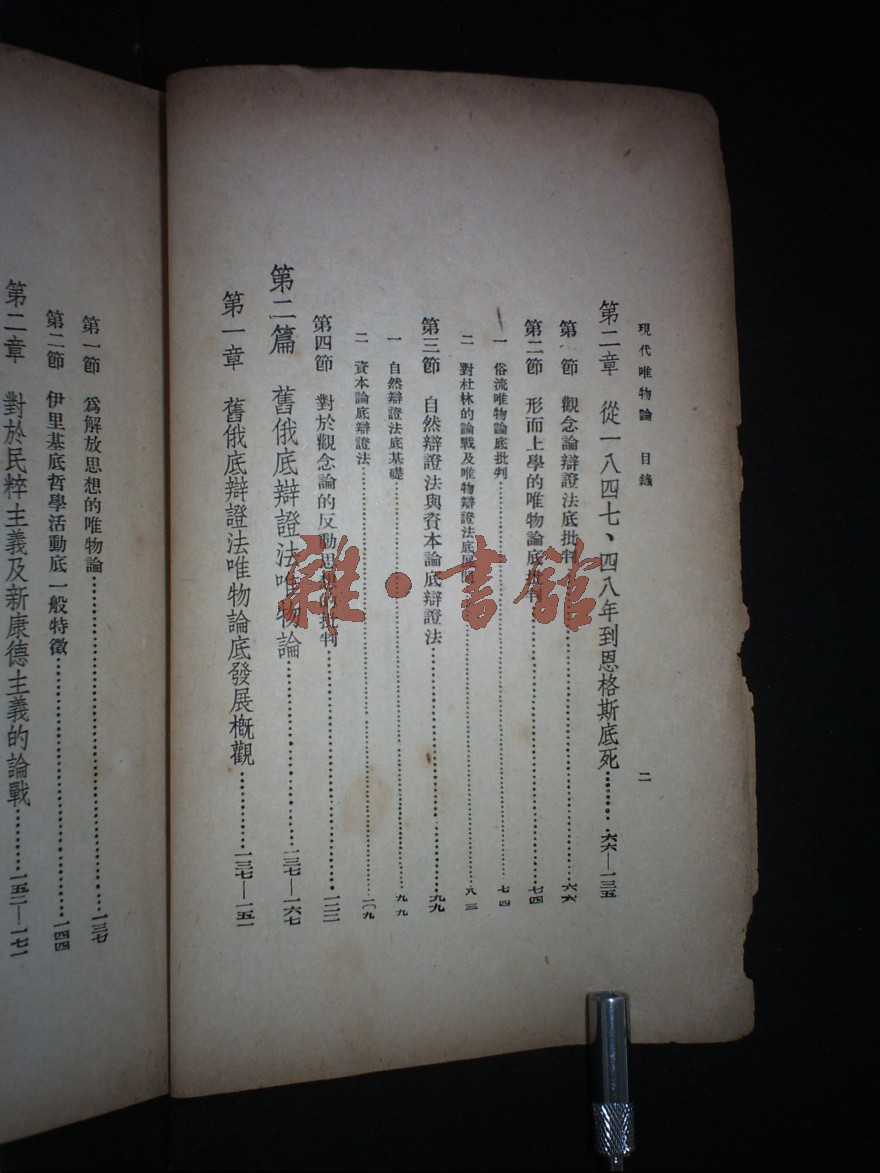 現代唯物論 目錄
二
第二章 從一八四七、四八年到恩格斯底死………六六—一三五
第一節 觀念論辯證法底批判………六六
第二節 形而上學的唯物論底批判………七四
一 俗流唯物論底批判………七四
二 對杜林的論戰及唯物辯證法底展開………八三
第三節 自然辯證法與資本論底辯證法………九九
一 自然辯證法底基礎………九九
二 資本論底辯證法………一〇九
第四節 對於觀念論的反動思想的批判………一二二
第二篇 舊俄底辯證法唯物論………一三七—一六七
第一章 舊俄底辯證法唯物論底發展概觀………一三七—一五一
第一節 爲解放思想的唯物論………一三七
第二節 伊里基底哲學活動底一般特徵………一四四
第二章 對於民粹主義及新康德主義的論戰………一五二—一七一
雜·書館